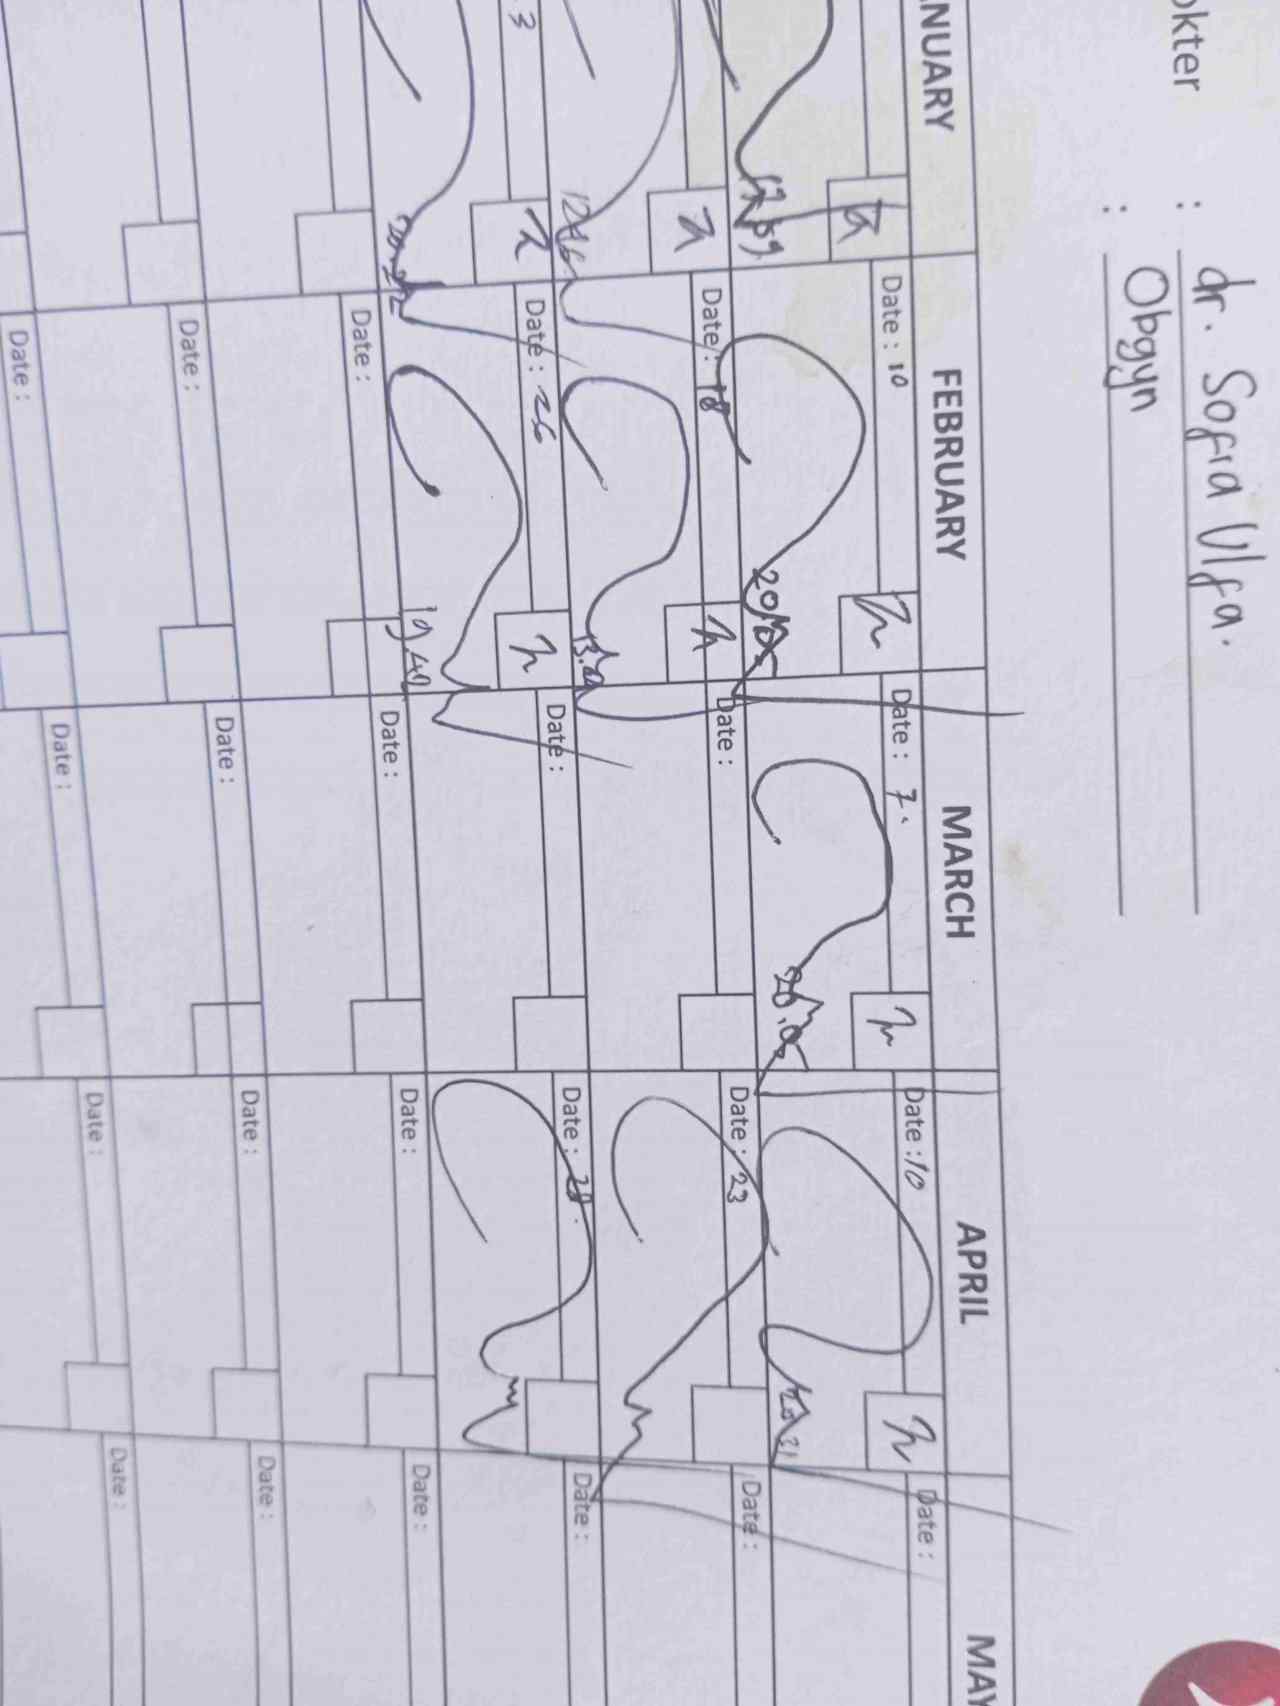 okter : dr. Sofia Ulfa.
: Obgyn
NUARY FEBRUARY MARCH APRIL MAY
Date : 10 Date : 7. Date : 10 Date :
20.05 20.05
Date : 18 Date : Date : 23 Date :
3 Date : 26 Date : Date : 28. Date :
19.40
Date : Date : Date : Date :
Date : Date : Date : Date :
Date : Date : Date : Date :